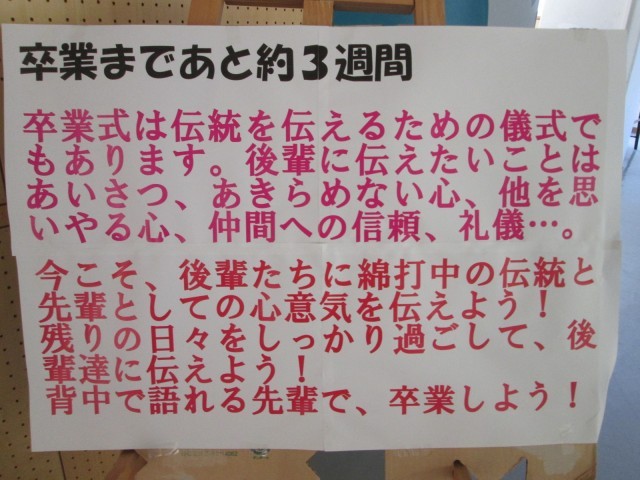 卒業まであと約３週間
卒業式は伝統を伝えるための儀式で
もあります。後輩に伝えたいことは
あいさつ、あきらめない心、他を思
いやる心、仲間への信頼、礼儀…。
今こそ、後輩たちに綿打中の伝統と
先輩としての心意気を伝えよう！
残りの日々をしっかり過ごして、後
輩達に伝えよう！
背中で語れる先輩で、卒業しよう！